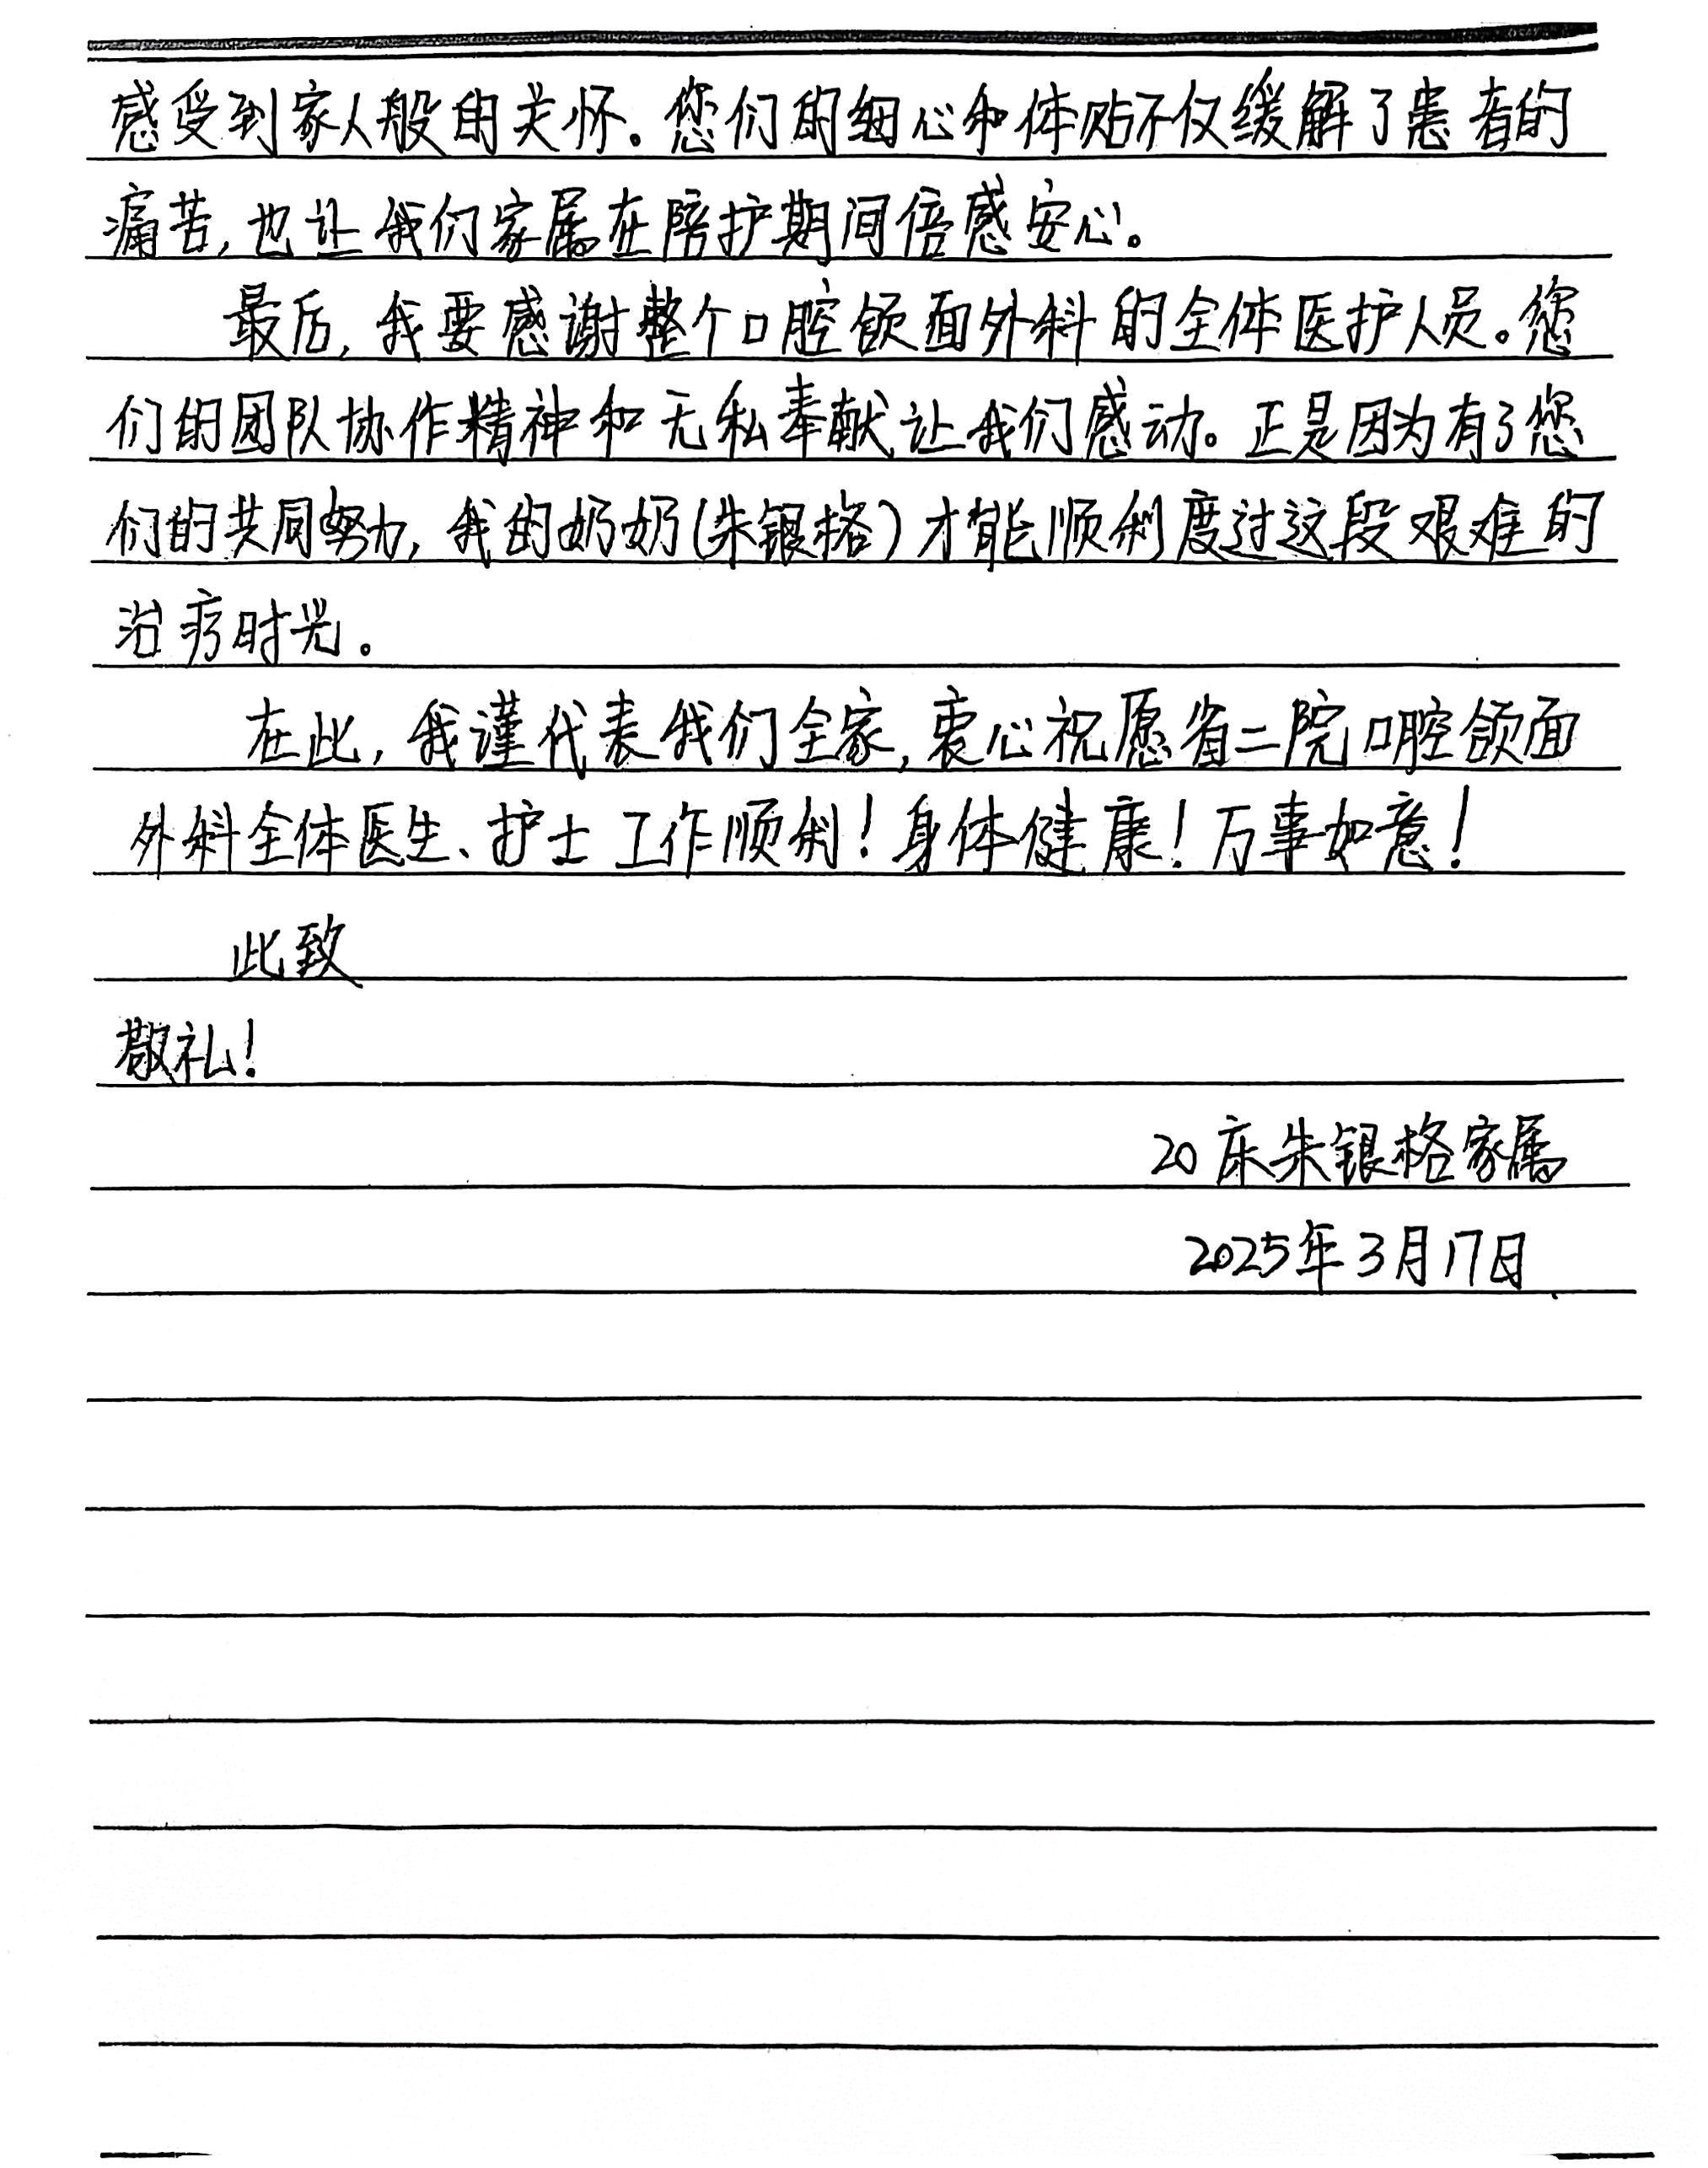 感受到家人般的关怀。您们的细心和体贴不仅缓解了患者的
痛苦,也让我们家属在陪护期间倍感安心。
最后,我要感谢整个口腔颌面外科的全体医护人员。您
们的团队协作精神和无私奉献让我们感动。正是因为有了您
们的共同努力,我的奶奶(朱银格)才能顺利度过这段艰难的
治疗时光。
在此,我谨代表我们全家,衷心祝愿省二院口腔颌面
外科全体医生、护士工作顺利!身体健康!万事如意!
此致
敬礼!
20床朱银格家属
2025年3月17日